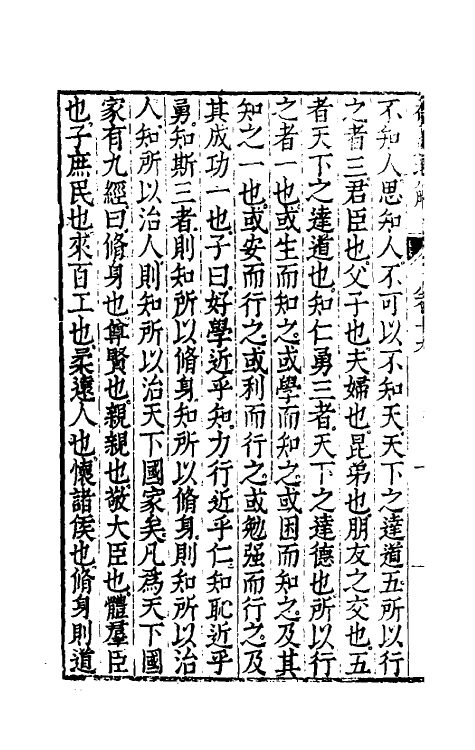 不知人思知人不可以不知天天下之達道五所以行
之者三君臣也父子也夫婦也昆弟也朋友之交也五
者天下之達道也知仁勇三者天下之達德也所以行
之者一也或生而知之或學而知之或困而知之及其
知之一也或安而行之或利而行之或勉强而行之及
其成功一也子曰好學近乎知力行近乎仁知恥近乎
勇知斯三者則知所以脩身知所以脩身則知所以治
人知所以治人則知所以治天下國家矣凡爲天下國
家有九經曰脩身也尊賢也親親也敬大臣也體羣臣
也子庶民也來百工也柔遠人也懷諸侯也脩身則道